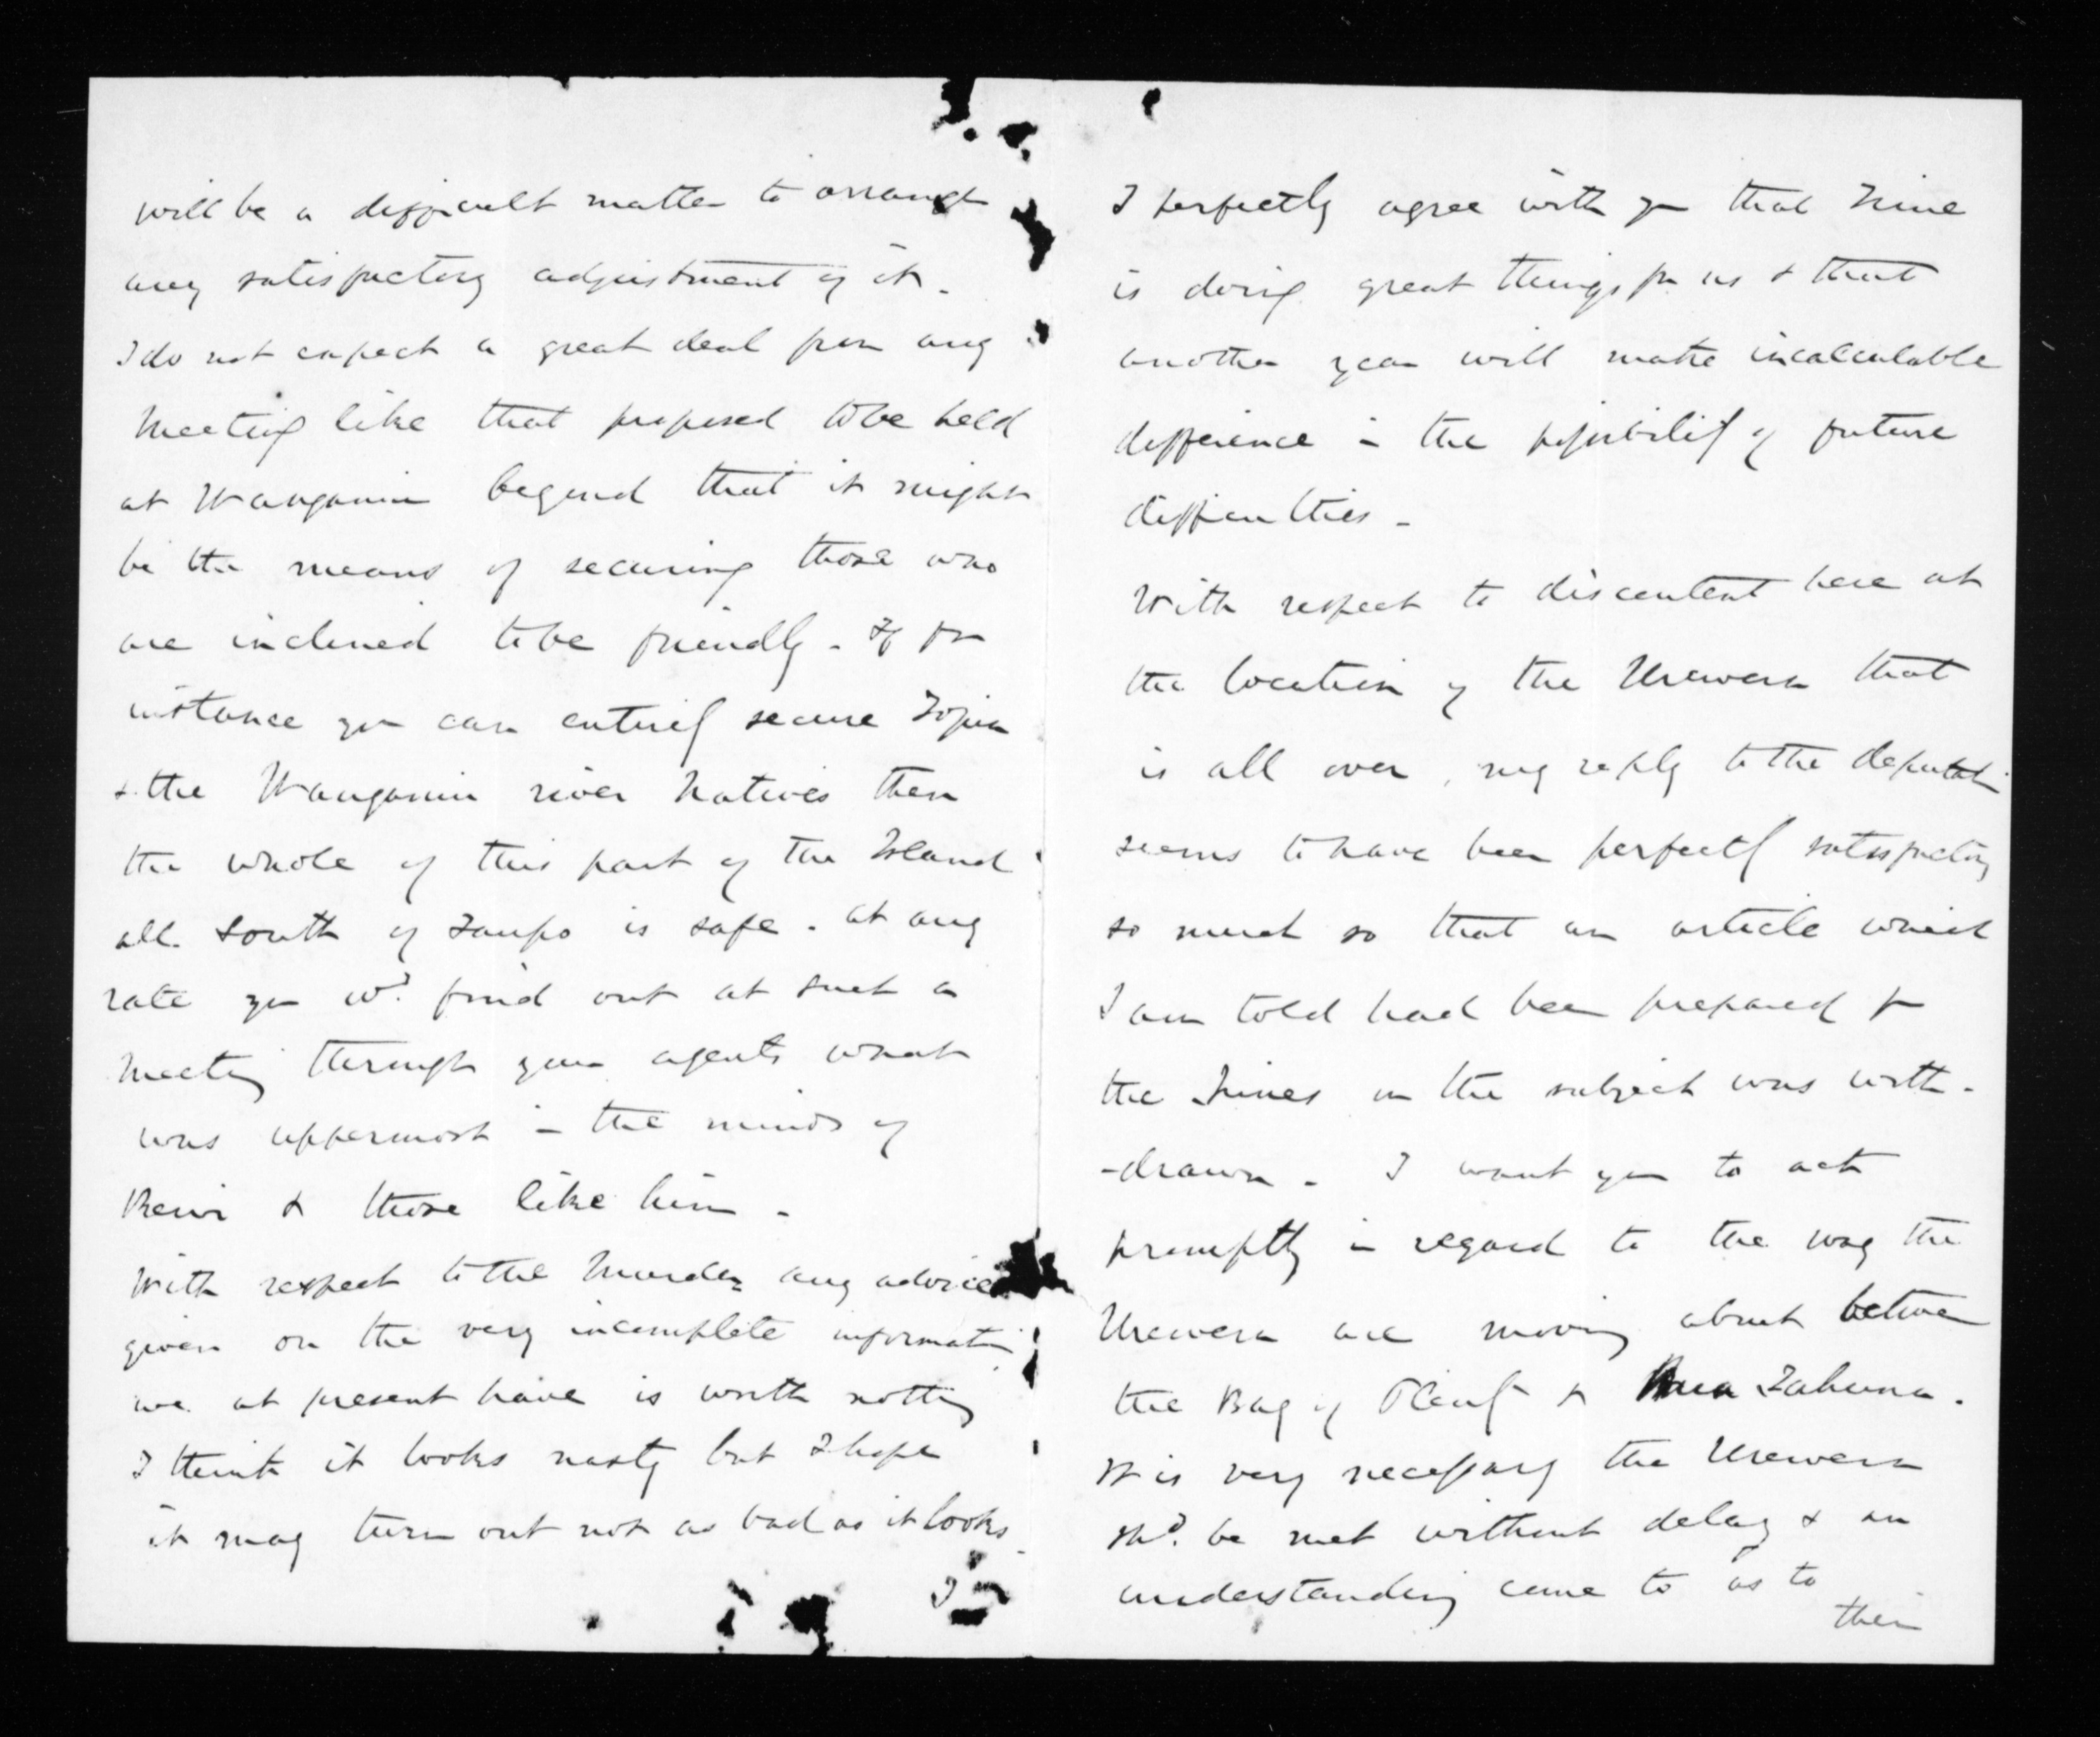 will be a difficult matter to arrange
any satisfactory adjustment of it.
I do not expect a great deal from any
Meeting like that proposed to be held
at Wanganui beyond that it might
be the means of securing those who
are inclined to be friendly. If for
instance you can entirely secure Topia
& the Wanganui river Natives then
the whole of this part of the Island
all South of Taupo is safe. At any
rate you wd. find out at such a
Meeting through your agents what
was uppermost in the minds of
Rewi & those like him.
With respect to the Murder any advice
given on the very incomplete information
we at present have is worth nothing
I think it looks nasty but I hope
it may turn out not as bad as it looks.
I
I perfectly agree with you that Time
is doing great things for us & that
another year will make incalculable
difference in the possibility of future
difficulties -
With respect to discontent here at
the location of the Urewera that
is all over, my reply to the deputation
seems to have been perfectly satisfactory
so much so that an article which
I am told had been prepared for
the Times on the subject was with-
-drawn. I want you to act
promptly in regard to the way the
Urewera are moving about between
the Bay of Plenty & Rua Tahuna.
It is very necessary the Urewera
shd. be met without delay & an
understanding come to as to
their